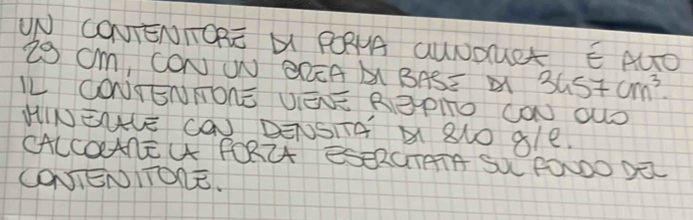 UN CONTENITORE DI FORMA CILINDRICA È ALTO
29 cm, CON UN AREA DI BASE DI 3457 cm².
IL CONTENITORE VIENE RIEMPITO CON OLIO
MINERALE CON DENSITÀ DI 810 g/l.
CALCOLARE LA FORZA ESERCITATA SUL FONDO DEL
CONTENITORE.